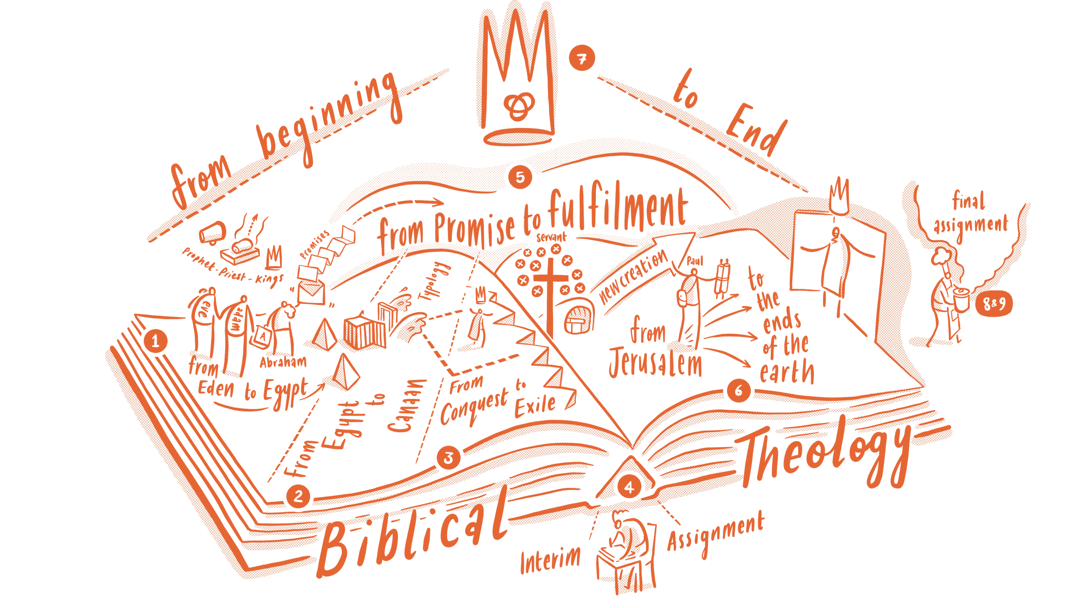 7
from beginning
to End
5
from Promise to fulfilment
final
assignment
8&9
Prophet-Priest-Kings
Promises
Typology
servant
new creation
Paul
1
eve
adam
A
Abraham
from
Eden to Egypt
2
From
Egypt
to
Canaan
3
From
Conquest to
Exile
from
Jerusalem
to
the
ends
of the
earth
6
4
Biblical
Theology
Interim
Assignment